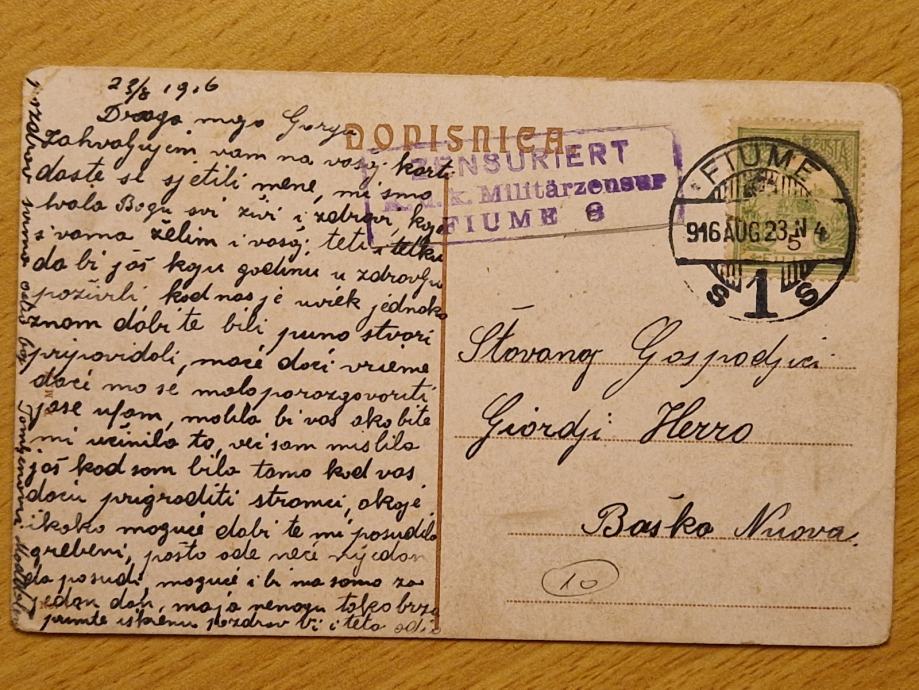 23/8 1916
Draga mojo Gorgu
DOPISNICA
zahvaljujem vam na vasoj karti
daste se sjetili mene, mi smo
hvala Bogu svi živi i zdravi, koje
s'vama želim i vasoj teti s tetku
da bi još koju godinu u zdravlju
poživili, kod nas je uviek jednako
znam dobi te bili puno stvori
pripovidoli, moće doći vrieme
doći mo se malo porozgovoriti
jase ufam, molila bi vas ako bite
mi učinila to, već som mislila
još kod som bila tamo kod vas
doću prigraditi stromci, ako je
ikako moguće dobi te mi posudila
grebeni, posto ode neće nijedan
da posudi moguće i bi ma somo za
jedan dan, moja nenogu tolko brzo
primte iskrenu pozdrav bi i teta od
ZENSURIERT
k.u.k. Militärzensur
FIUME 8
FIUME
916 AUG. 23. N 4
5
S 1 S
Štovanoj Gospodjici
Giordji Herro
Baška Nuova.
10